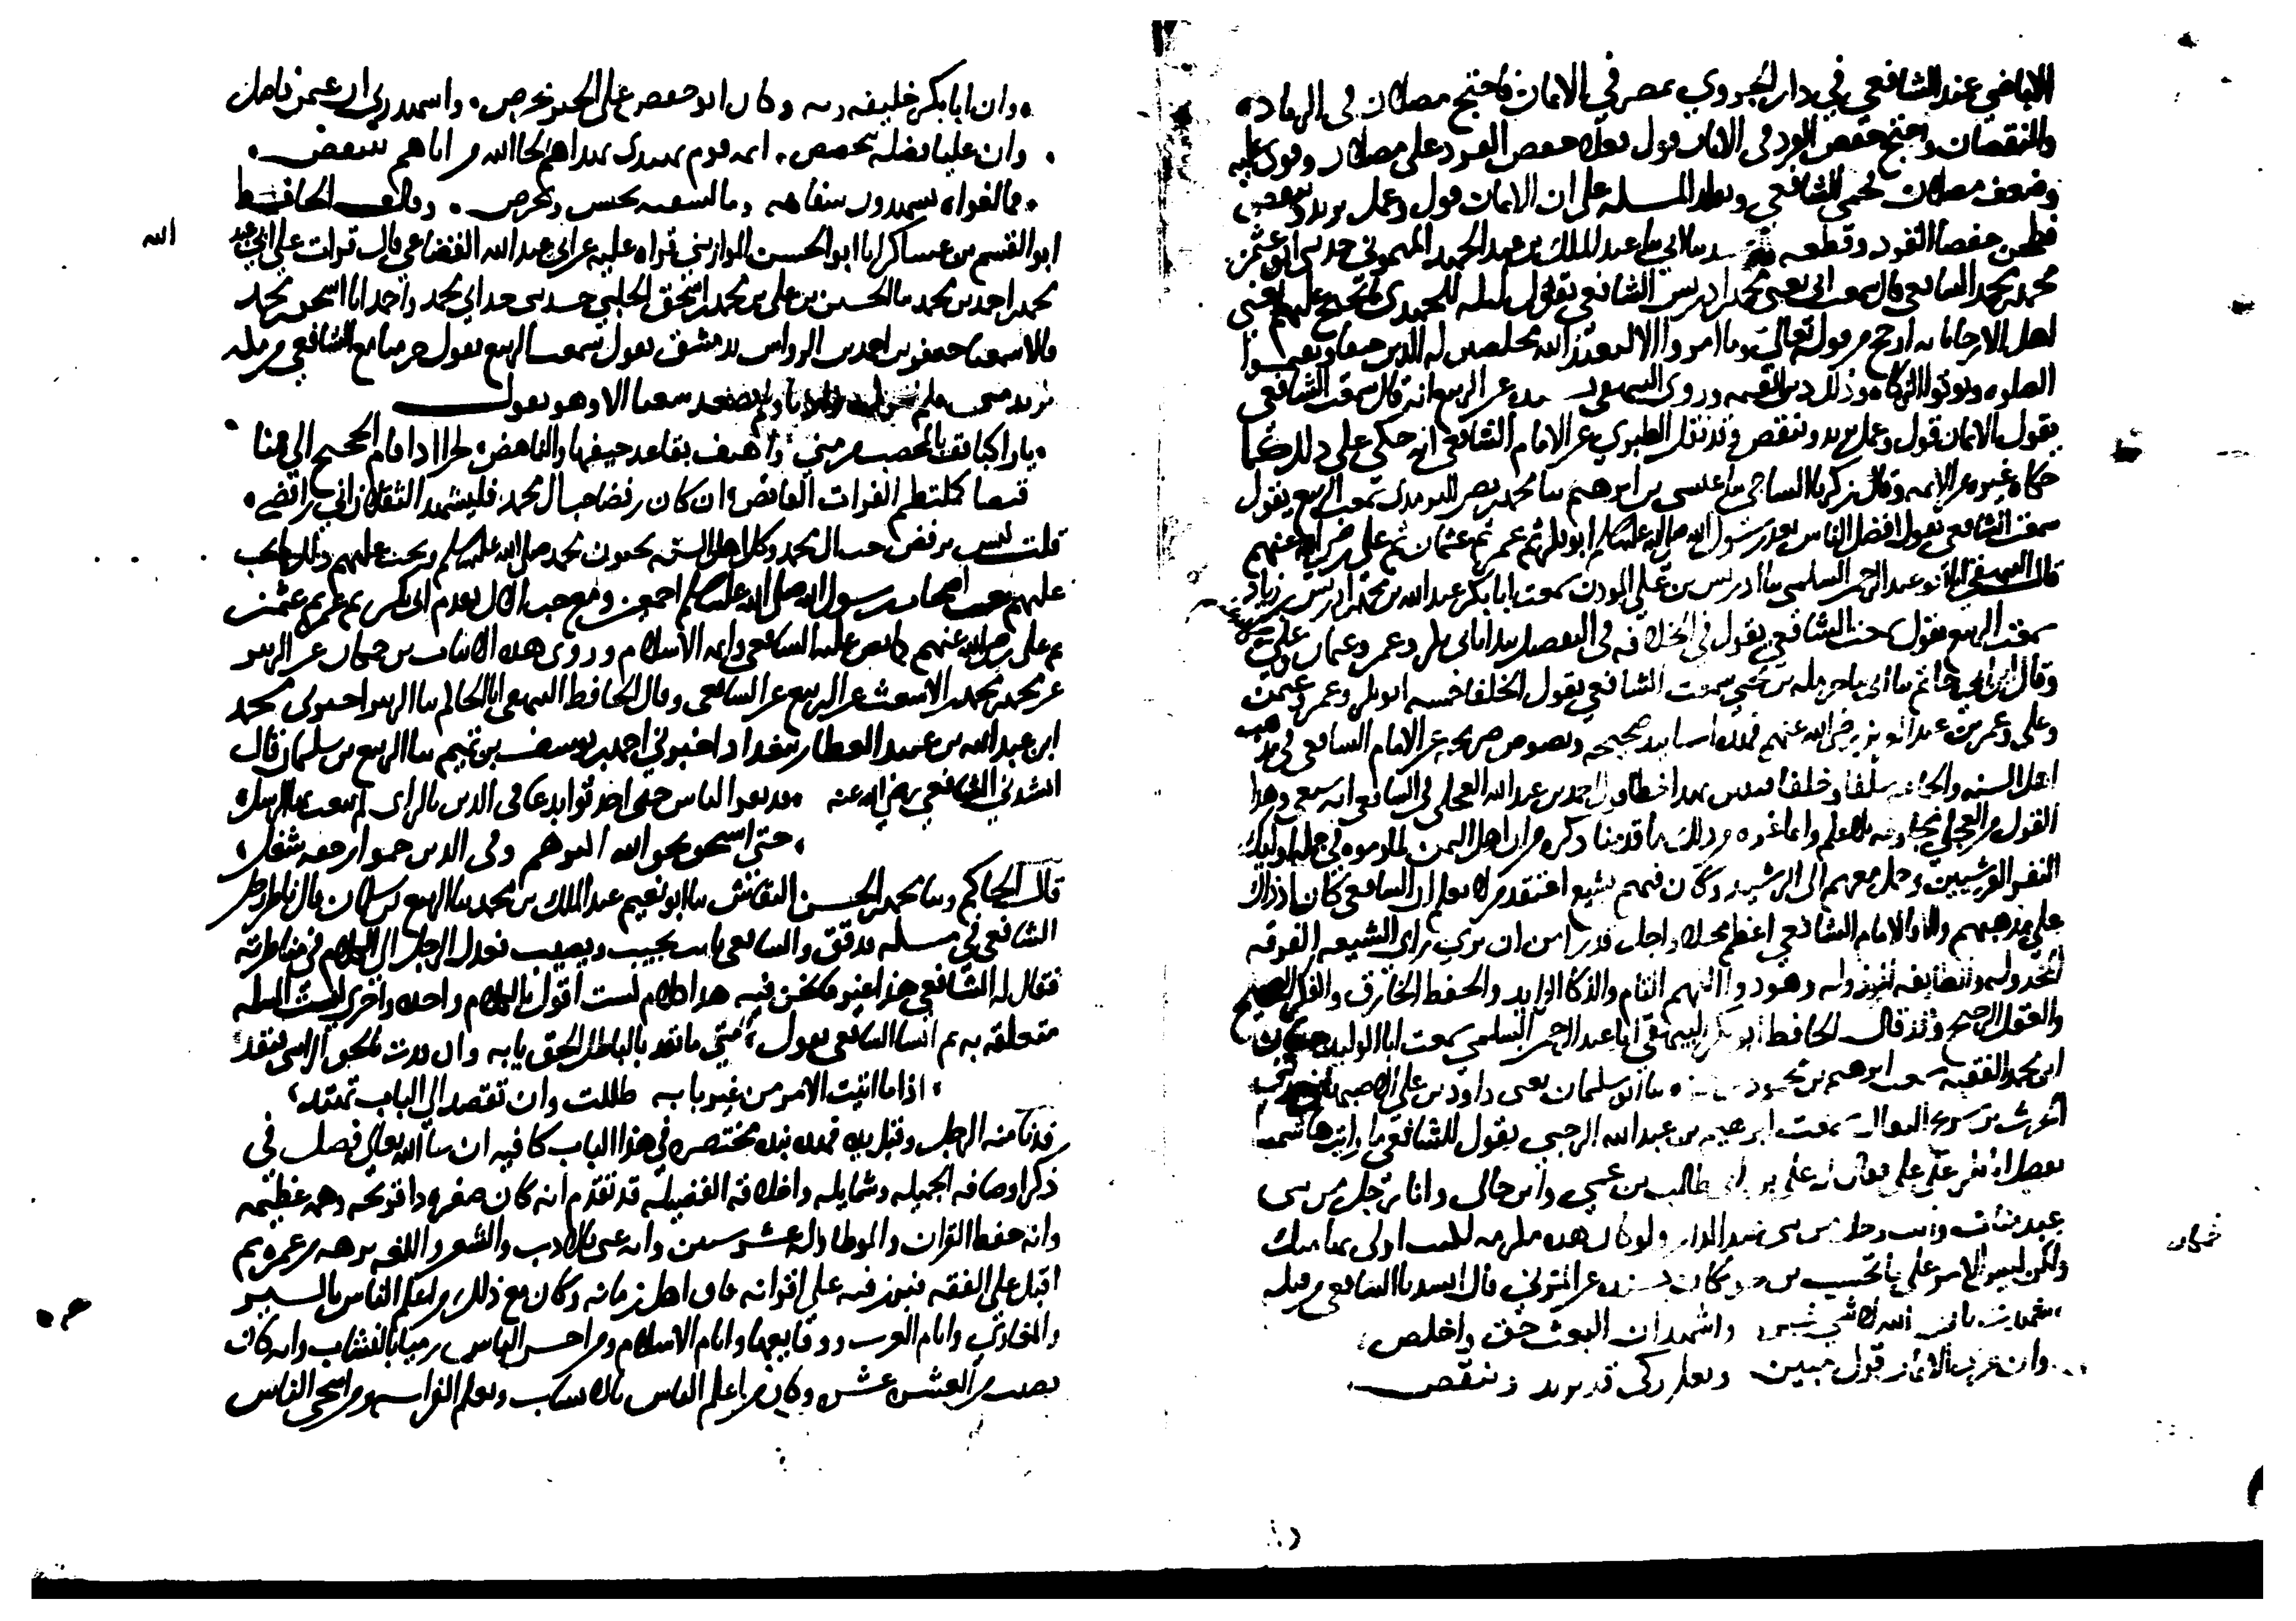 عند الشافعي في دار الجروي بمصر في الايمان فاحتج مصلان في الزياده
والنقصان واحتج حفص الفرد في الايمان قول فعلا حفص الفرد على مصلان وقوي عليه
وضعف مصلان فحمي الشافعي وتقلد المسله على ان الايمان قول وعمل يزيد وينقص
فطحن حفصا الفرد وقطعه عبد الملك بن عبد الحميد الميموني حدثني ابو عثمن
محمد بن محمد الشافعي قال سمعت ابي يعني محمد بن ادريس الشافعي يقول ليله للحميدي ما تحتج عليهم يعني
اهل الارجا بايه احج من قوله تعالى وما امروا الا ليعبدوا الله مخلصين له الدين حنفا ويقيموا
الصلوه ويوتوا الزكاه وذلك دين القيمه وروى البيهقي عن الربيع انه قال سمعت الشافعي
يقول الايمان قول وعمل يزيد وينقص وقد نقل الطبري عن الامام الشافعي انه حكى على ذلك
حكاه غيره عن الايمه وقال زكريا الساجي بن ابرهيم سا محمد بن نصر الترمذي سمعت الربيع يقول
سمعت الشافعي يقول افضل الناس بعد رسول الله صلى الله عليه وسلم ابو بكر ثم عمر ثم عثمان ثم علي رضي الله عنهم
قال البيهقي ابو عبد الرحمن السلمي سا ادريس بن علي المودب سمعت ابا بكر عبد الله بن محمد بن زياد
سمعت الربيع يقول سمعت الشافعي يقول في الخلافه في التفضيل يبدا بابي بكر وعمر وعثمان وعلي
وقال ابن ابي حاتم سا ابي سا حرمله بن يحيى سمعت الشافعي يقول الخلفا خمسه ابو بكر وعمر وعثمن
وعلي وعمر بن عبد العزيز رضي الله عنهم فهذه اسانيد صحيحه ونصوص صريحه عن الامام الشافعي في مذهب
اهل السنه والجماعه سلفا وخلفا اخطا قول احمد بن عبد الله العجلي في الشافعي انه شيعي وهذا
القول من العجلي مجازفه بلا علم وانما غره من ذلك ما قدمنا ذكره من ان اهل اليمن لما رموه في جمله اوليك
النفر القرشيين وحمل معهم الى الرشيد وكان فيهم تشيع اعتقد من لا يعلم ان الشافعي كان اذ ذاك
على مذهبهم والا فالامام الشافعي اعظم محلا واجل قدرا من ان يرى راي الشيعه الفرقه
المخذوله والطايفه المرذوله وهو ذو الفهم التام والذكا الزايد والحفظ الخارق والفكر الصحيح
والعقل الرجيح وقد قال الحافظ ابو بكر البيهقي انا عبد الرحمن السلمي سمعت ابا الوليد حسان
ابن محمد الفقيه سمعت ابرهيم بن محمود سليمان يعني داود بن علي الاصبهاني
الحرث بن سريج النقال سمعت ابرهيم بن عبد الله الحجبي يقول للشافعي ما رايت هاشميا
يفضل ابا بكر على علي فقال له علي بن ابي طالب بن عمي وابن خالي وانا رجل من بني
عبد مناف وانت رجل من بني عبد الدار ولو كان هذه مكرمه لكنت اولى بها منك
ولكن ليس الامر على ما تحسب عن المزني قال انشدنا الشافعي من قيله
شهدت بان الله لا شي غيره واشهد ان البعث حق واخلص
وان عرى الايمان قول مبين وفعل زكي قد يزيد وينقص
وان ابا بكر خليفه ربه وكان ابو حفص على الخير يحرص
واشهد ربي ان عثمن فاضل
وان عليا فضله يتخصص ايمه قوم يهتدى بهداهم لحا الله من اياهم يتنقص
فما لغواه يشهدون سفاهه وما لسفيه يحيص ويخرص وقال الحافظ
الله
ابو القسم بن عساكر انا ابو الحسن الموازيني قراه عليه عن ابي عبد الله القضاعي قال قرات على ابي عبد
محمد بن احمد بن محمد سا الحسين بن علي بن محمد بن اسحق الحلبي حدثني جداي محمد واحمد ابنا اسحق بن محمد
قالا سمعنا جعفر بن احمد بن الرواس بدمشق يقول سمعت الربيع يقول خرجنا مع الشافعي من مكه
نريد منى فلم ولم يصعد شعبا الا وهو يقول
يا راكبا قف بالمحصب من منى واهتف بقاعد خيفها والناهض
قيضا كملتطم الفرات الفايض ان كان رفضا حب ال محمد فليشهد الثقلان اني رافضي
قلت ليس برفض حب ال محمد وكل اهل السنه يحبون محمد صلى الله عليه وسلم ويجب عليهم ذلك كما يجب
عليهم حب اصحاب رسول الله صلى الله عليه وسلم اجمعين ومع حب الال يقدم ابي بكر ثم عمر ثم عثمن
ثم علي رضي الله عنهم كما نص عليه الشافعي وايمه الاسلام وروى هذه الابيات بن حيان عن الزبير
عن محمد بن محمد بن الاشعث عن الربيع عن الشافعي وقال الحافظ البيهقي انا الحاكم سا الزبير اخبرني محمد
ابن عبد الله بن عبيد العطار ببغداد اخبرني احمد بن يوسف بن تميم سا الربيع بن سليمان قال
انشدني الشافعي رضي الله عنه الناس حتى احدثوا بدعا في الدين بالراي لم تبعث بها الرسل
حتى استخف بحق الله اكثرهم وفي الذين حموا من حقه شغل
قال الحاكم وسا محمد بن الحسن النقاش سا ابو نعيم عبد الملك بن محمد سا الربيع بن سليمان قال ناظر رجل
الشافعي في مسله فدقق والشافعي ثابت يجيب ويصيب فعدل الرجل الى الكلام في مناظرته
فقال له الشافعي هذا غير ما نحن فيه هذا كلام لست اقول بالكلام واحده واخرى ليست المسله
متعلقه به ثم انشا الشافعي يقول متى ما تقد بالباطل الحق يابه وان قدت بالحق الرواسي تنقد
اذا ما اتيت الامر من غير بابه ضللت وان تقصد الى الباب تهتد
فدنا منه الرجل وقبل يده فهذه نبذه مختصره في هذا الباب كافيه ان شا الله تعالى فصل في
ذكر اوصافه الجميله وشمايله واخلاقه الفضيله قد تقدم انه كان صغره ذا قريحه وهمه عظيمه
وانه حفظ القران والموطا وله عشر سنين وانه عنى بالادب والشعر واللغه برهه من عمره ثم
اقبل على الفقه فبرز فيه على اقرانه وفاق اهل زمانه وكان مع ذلك من اعلم الناس بالسير
والمغازي وايام العرب ووقايعها وايام الاسلام ومن احسن الناس رميا بالنشاب وانه كان
يصيب من العشره عشره وكان من اعلم الناس بالانساب وتعلم الفراسه ومن اسخى الناس